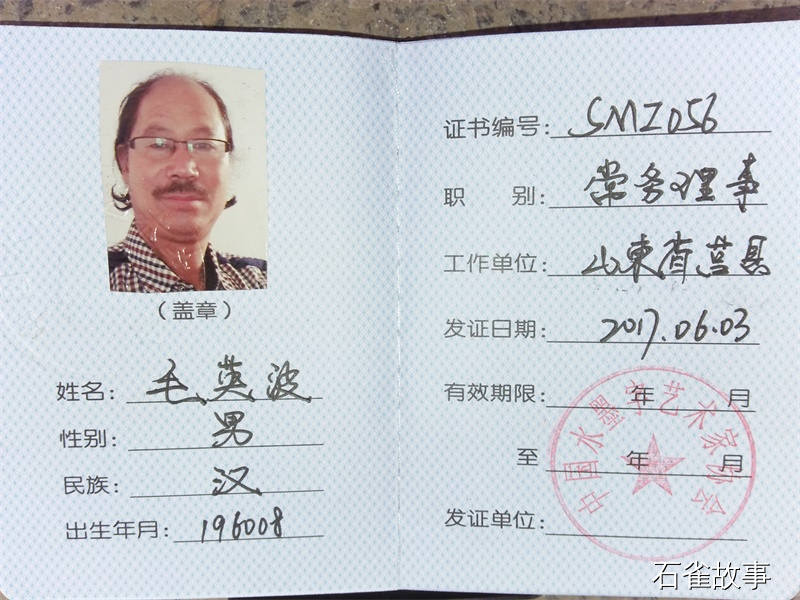 （盖章）
姓名：毛英波
性别：男
民族：汉
出生年月：196008
证书编号：SMZ056
职 别：常务理事
工作单位：山東省莒县
发证日期：2017.06.03
有效期限： 年 月
至 年 月
发证单位：
中国水墨学艺术家协会
石雀故事